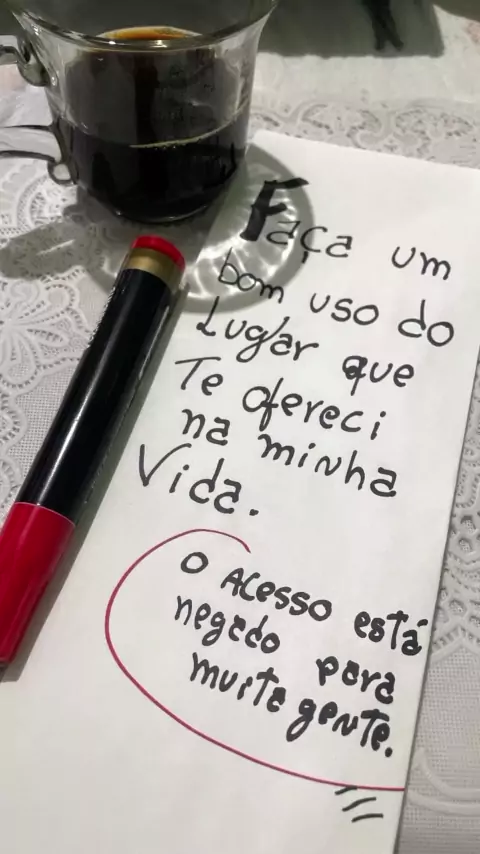 Faça um
bom uso do
Lugar que
Te ofereci
na minha
Vida.
O Acesso está
negado para
muita gente.